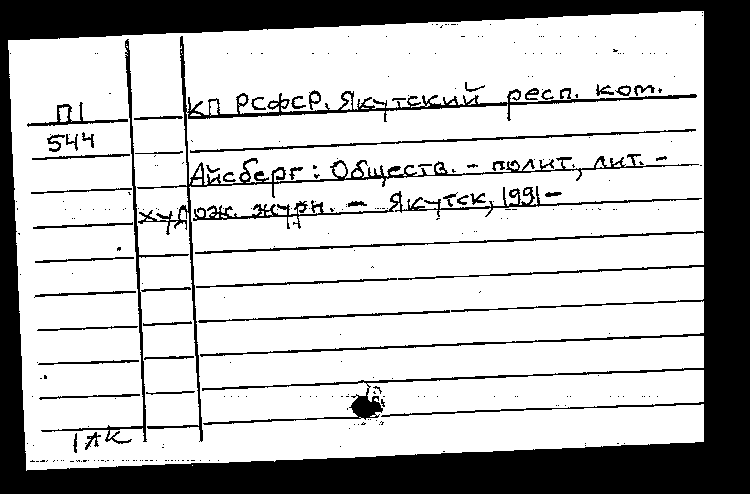 П1 КП РСФСР. Якутский респ. ком.
544
Айсберг : Обществ. - полит., лит. -
худож. журн. - Якутск, 1991 -
1 лк